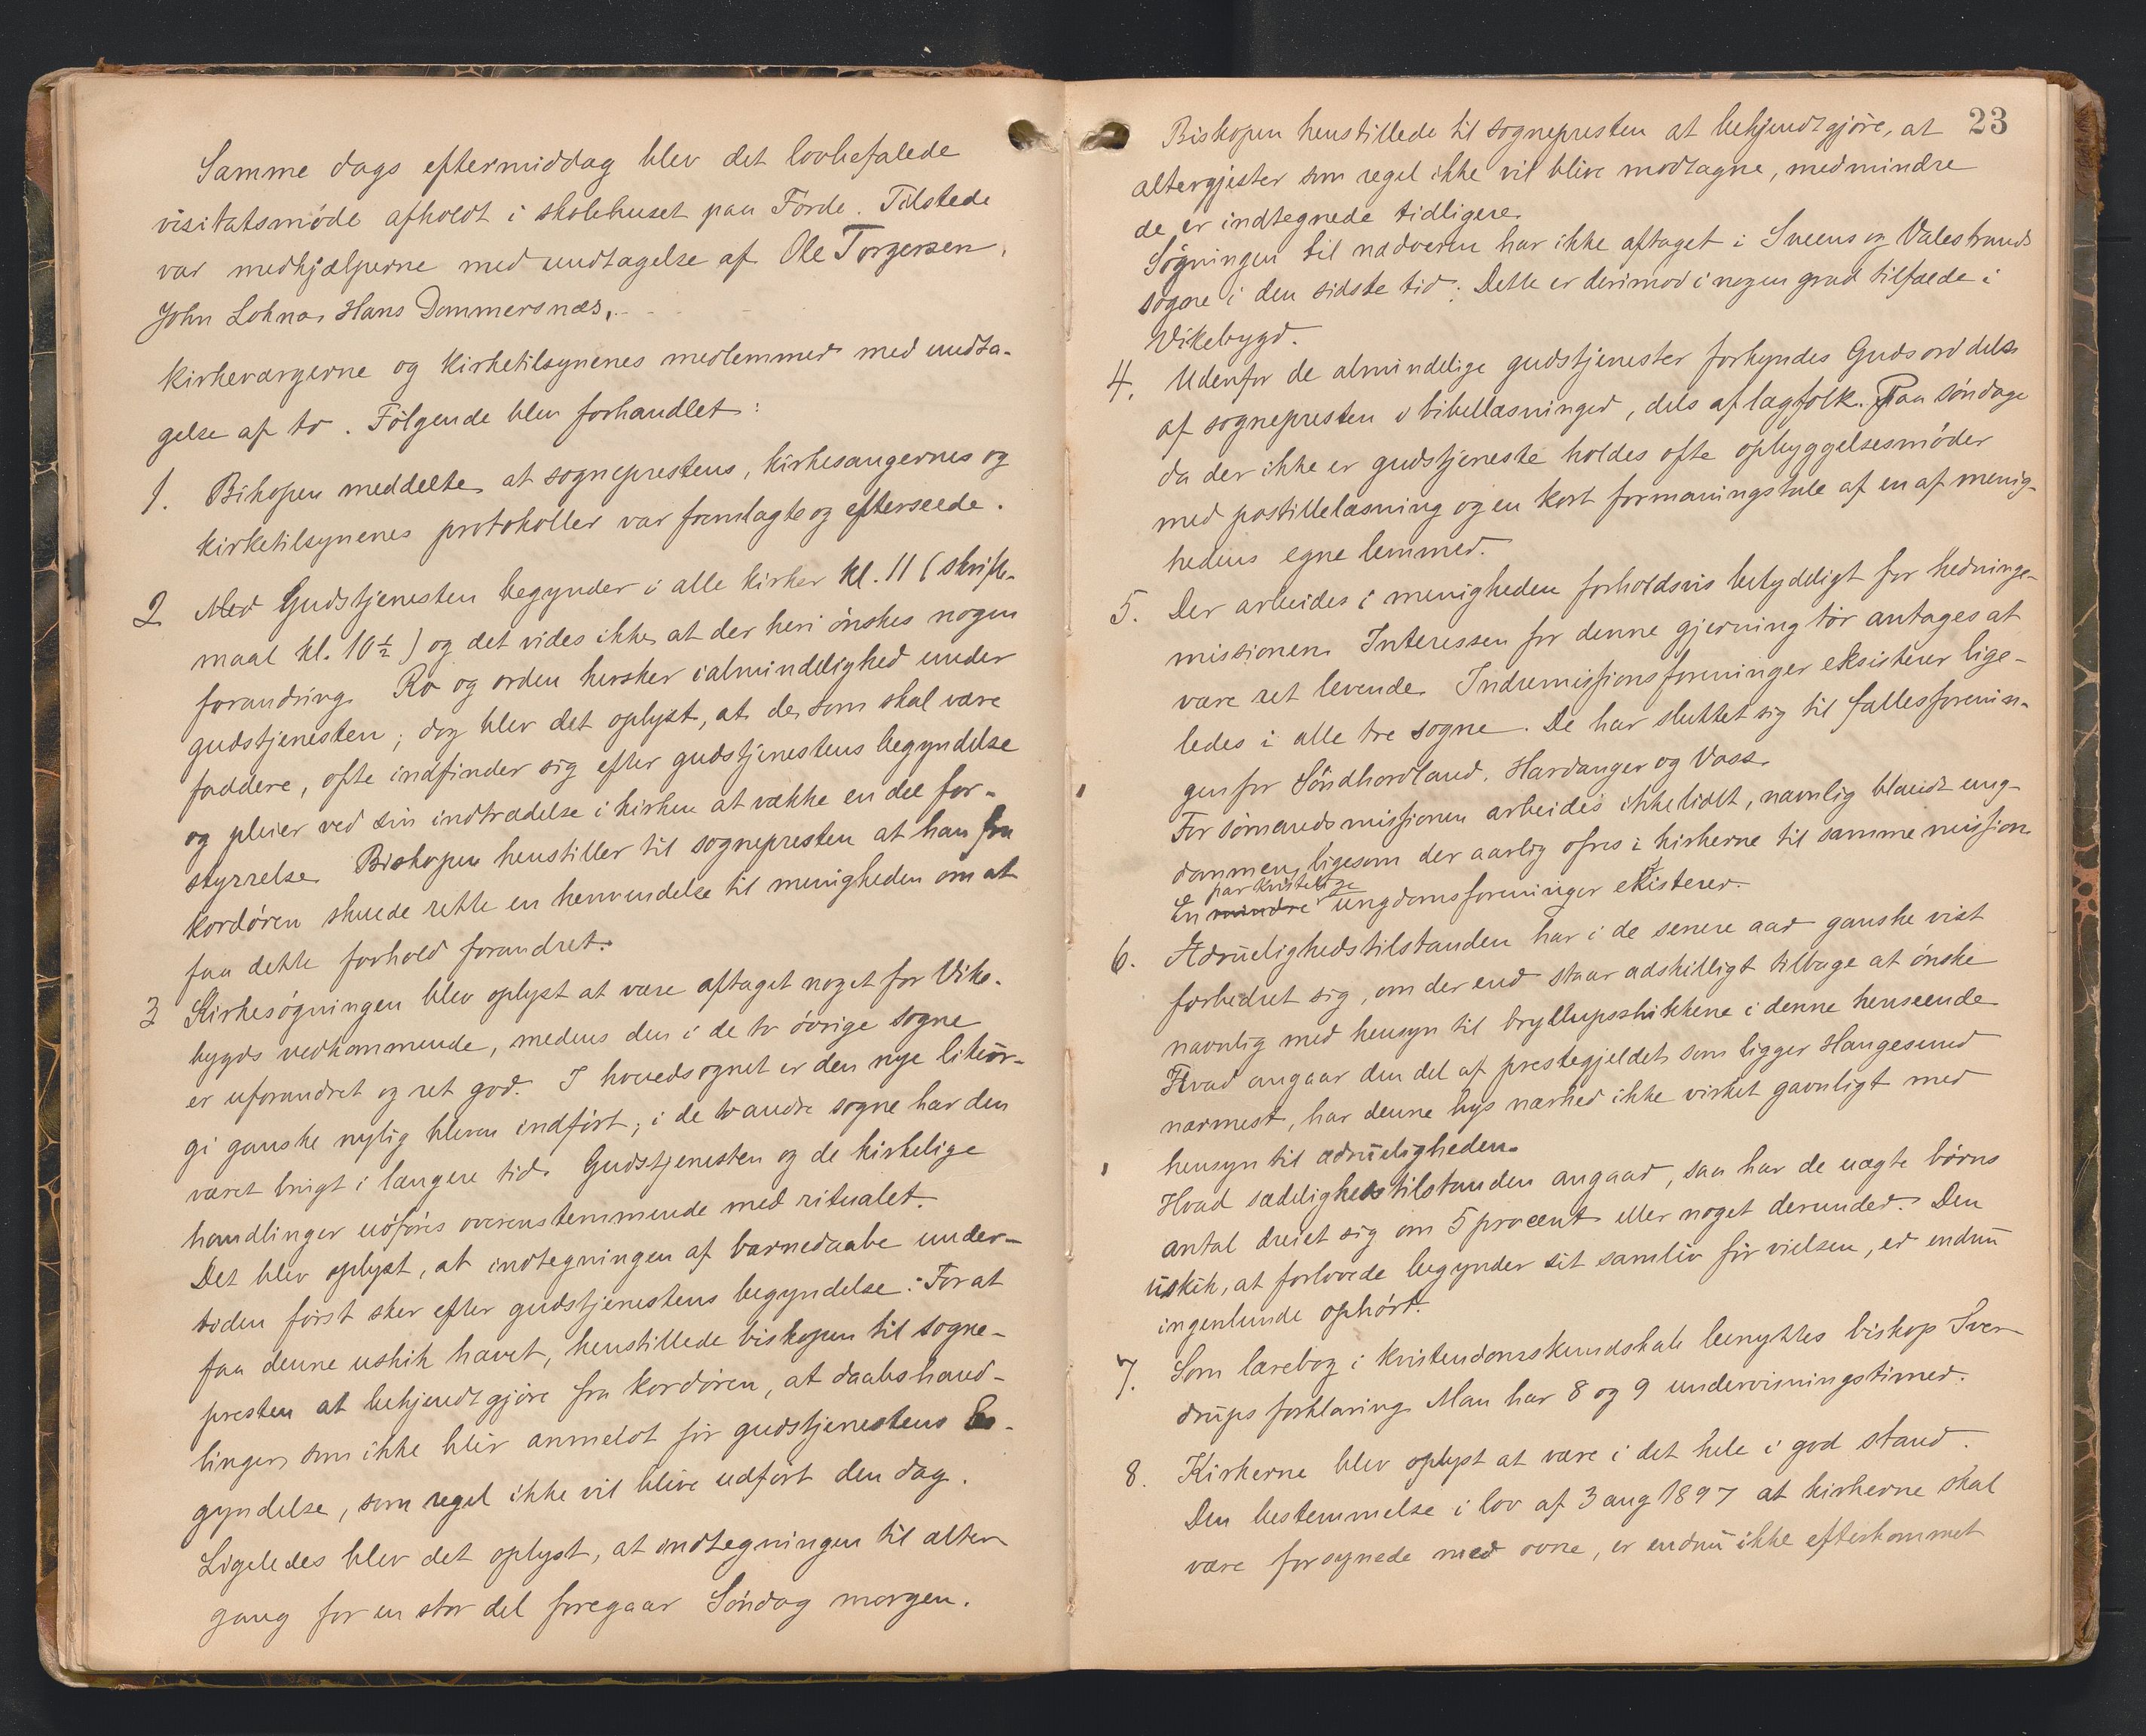 Samme dags eftermiddag blev det lovbefalede
visitatsmøde afholdt i skolehuset paa Førde. Tilstede
var medhjælperne med undtagelse af Ole Torgersen,
John Lohna, Hans Dommersnæs,
kirkeværgerne og kirketilsynenes medlemmer med undta-
gelse af to. Følgende blev forhandlet:
1. Bikopen meddelte, at sogneprestens, kirkesangernes og
kirketilsynenes protokoller var fremlagte og efterseede.
2 Med Gudstjenesten begynder i alle kirker kl. 11 (skrifte-
maal kl. 10½) og det vides ikke, at der heri ønskes nogen
forandring. Ro og orden hersker i almindelighed under
gudstjenesten; dog blev det oplyst, at de, som skal være
faddere, ofte indfinder sig efter gudstjenestens begyndelse
og pleier ved sin indtrædelse i kirken at vække en del for-
styrrelse. Biskopen henstiller til sognepresten at han fra
kordøren skulde rette en henvendelse til menigheden om at
faa dette forhold forandret.
3 Kirkesøgningen blev oplyst at være aftaget noget for Vike-
bygds vedkommende, medens den i de to øvrige sogne
er uforandret og ret god. I hovedsognet er den nye litur-
gi ganske nylig bleven indført; i de to andre sogne har den
været brugt i længere tid. Gudstjenesten og de kirkelige
handlinger udføres overenstemmende med ritualet.
Det blev oplyst, at indtegningen af barnedaabe under-
tiden først sker efter gudstjenestens begyndelse: For at
faa denne uskik hævet, henstillede biskopen til sogne-
presten at bekjendtgjøre fra kordøren, at daabshand-
linger, som ikke blir anmeldt før gudstjenestens be-
gyndelse, som regel ikke vil blive udført den dag.
Ligeledes blev det oplyst, at indtegningen til alter
gang for en stor del foregaar Søndag morgen.
23
Biskopen henstillede til sognepresten at bekjendtgjøre, at
altergjester som regel ikke vil blive modtagne, medmindre
de er indtegnede tidligere.
Søgningen til nadveren har ikke aftaget i Sveens og Valestrands
sogne i den sidste tid; Dette er derimod i nogen grad tilfælde i
Vikebygd.
4. Udenfor de almindelige gudstjenester forkyndes Guds ord dels
af sognepresten i bibellæsninger, dels af lægfolk. Paa søndage
da der ikke er gudstjeneste holdes ofte opbyggelsesmøder
med postillelæsning og en kort formaningstale af en af menig-
hedens egne lemmer.
5. Der arbeides i menigheden forholdsvis betyddeligt for hedninge-
missionen. Interessen for denne gjerning tør antages at
være ret levende. Indremissionsforeninger eksisterer lige-
ledes i alle tre sogne. De har sluttet sig til fællesforenin-
gen for Søndhordland, Hardanger og Voss.
For sømandsmissionen arbeides ikke lidet, navnlig blandt ung-
dommen, ligesom der aarlig ofres i kirkerne til samme mission.
par kristelige
En mindre ungdomsforeninger eksisterer.
6. Ædruelighedstilstanden har i de senere aar ganske vist
forbedret sig, om der end staar adskilligt tilbage at ønske
navnlig med hensyn til bryllupsskikkene i denne henseende
Hvad angaar den del af prestegjeldet, som ligger Haugesund
nærmest, har denne bys nærhed ikke virket gavnligt med
hensyn til ædrueligheden.
Hvad sædelighedstilstanden angaar, saa har de uægte børns
antal dreiet sig om 5 procent eller noget derunder. Den
uskik, at forlovede begynder sit samliv før vielsen, er endnu
ingenlunde ophørt.
7. Som lærebog i kristendomskundskab benyttes biskop Sver
drups forklaring. Man har 8 og 9 undervisningstimer.
8. Kirkerne blev oplyst at være i det hele i god stand.
Den bestemmelse i lov af 3 aug 1897 at kirkerne skal
være forsynede med ovne, er endnu ikke efterkommet